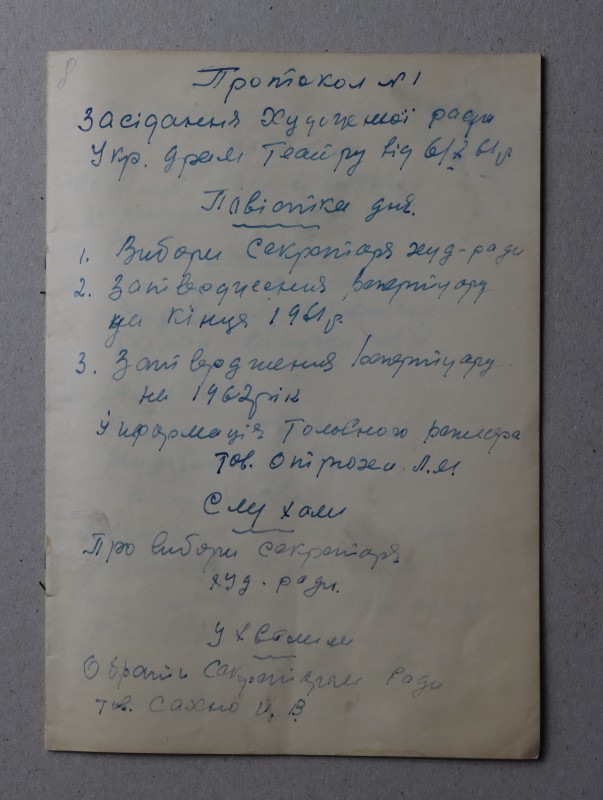 8
Протокол № 1
Засідання Художньої ради
Укр. драм театру від 6/X 61 р
Павістка дня.
1. Вибори секретаря худ-ради
2. Затвердження репертуару
до кінця 1961 р.
3. Затвердження репертуару
на 1962 рік
Информація Головного режисера
тов. Л.М.
Слухали
Про вибори секретаря
худ-ради.
Ухвалили
Обрати секретарем ради
тов. Сахно И. В